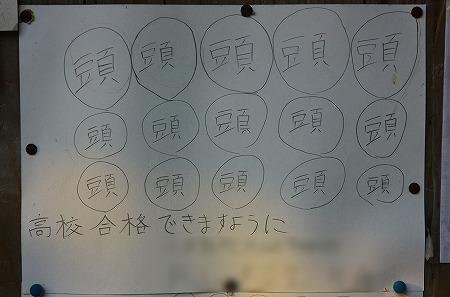 頭 頭 頭 頭 頭
頭 頭 頭 頭 頭
頭 頭 頭 頭 頭
高校合格できますように